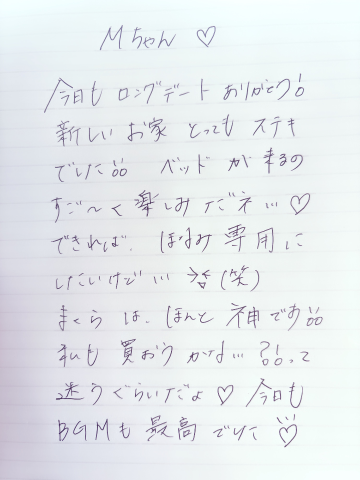 Mちゃん ♡
今日も ロングデート ありがとう!!
新しい お家 とっても ステキ
でした!! ベッド が 来るの
すご〜く 楽しみ だネ… ♡
できれば、ほなみ 専用 に
したいけど… (笑)
まくら は、ほんと 神です!!
私も 買おう かな… ?!って
迷う ぐらいだよ ♡ 今日も
BGMも 最高 でした ♡